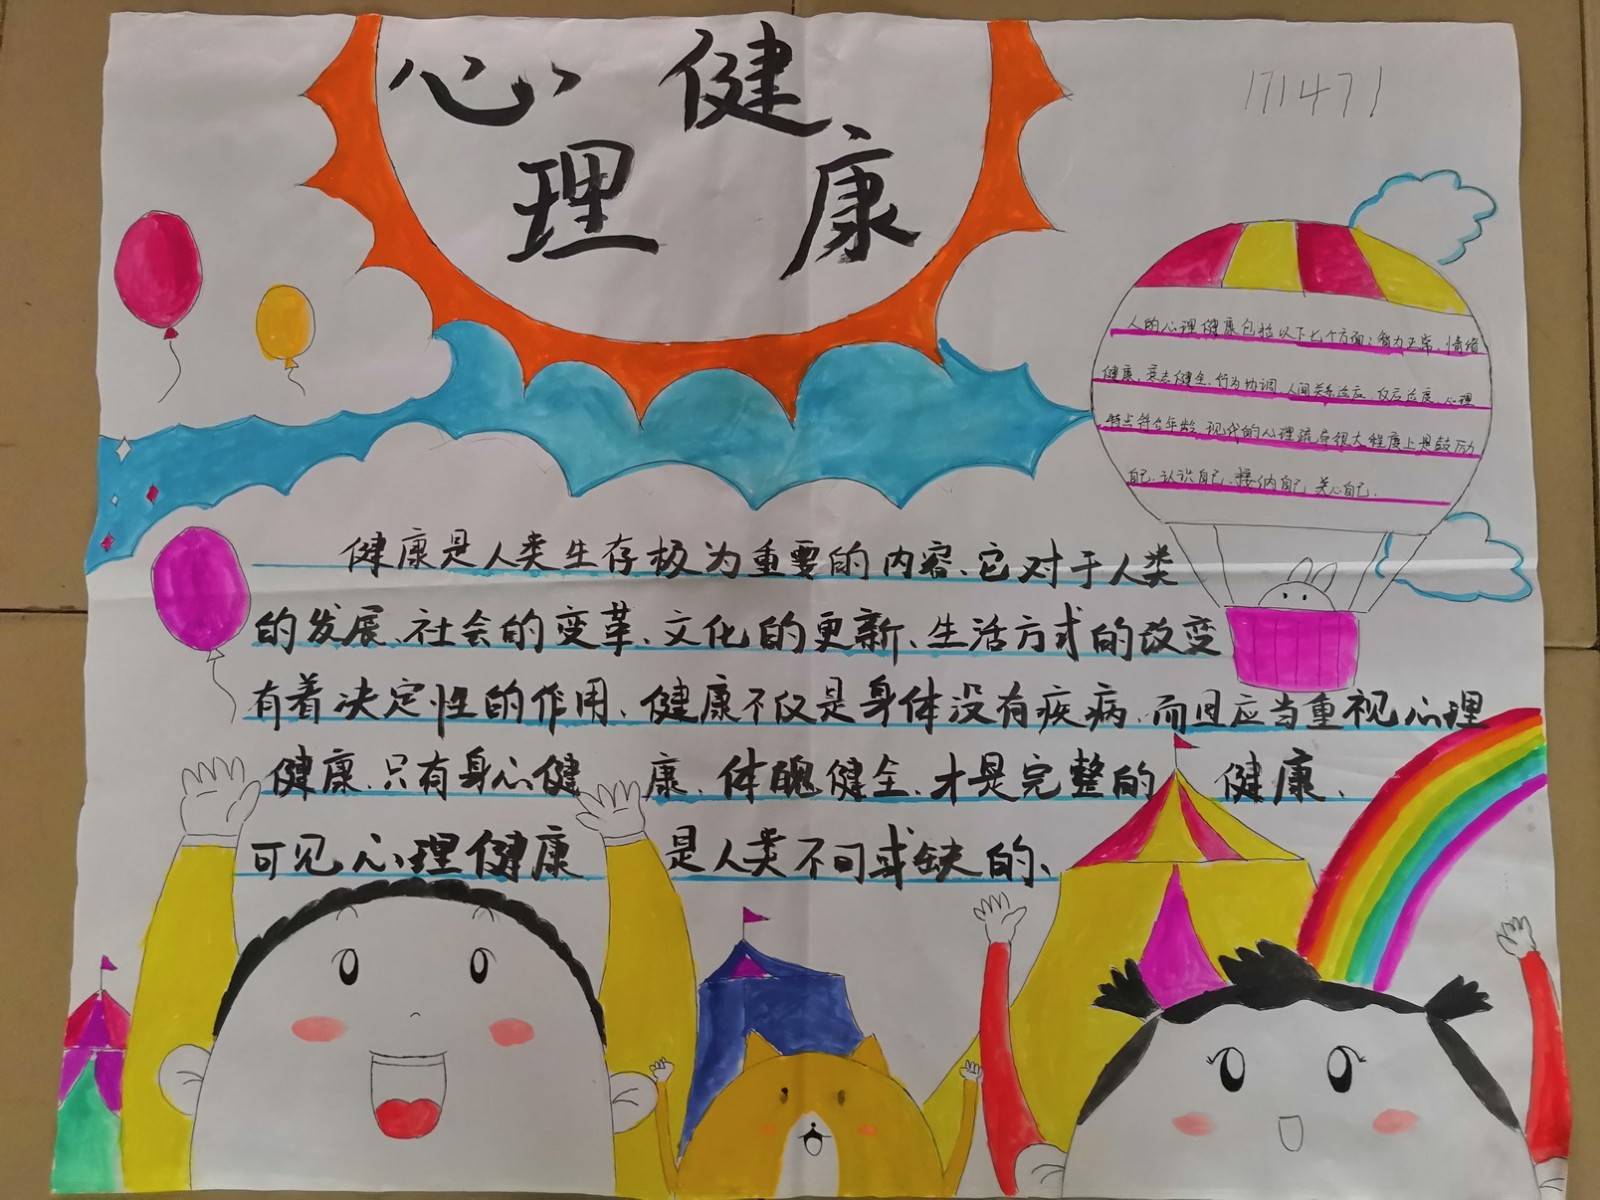 心理健康
171471
人的心理健康包括以下七个方面:智力正常、情绪
健康、意志健全、行为协调、人间关系适应、反应适度、心理
特点符合年龄、现代的心理疏导很大程度上是鼓励
自己、认识自己、接纳自己、关心自己.
健康是人类生存极为重要的内容、它对于人类
的发展、社会的变革、文化的更新、生活方式的改变
有着决定性的作用、健康不仅是身体没有疾病、而且应当重视心理
健康、只有身心健康、体魄健全、才是完整的健康、
可见心理健康是人类不可或缺的、